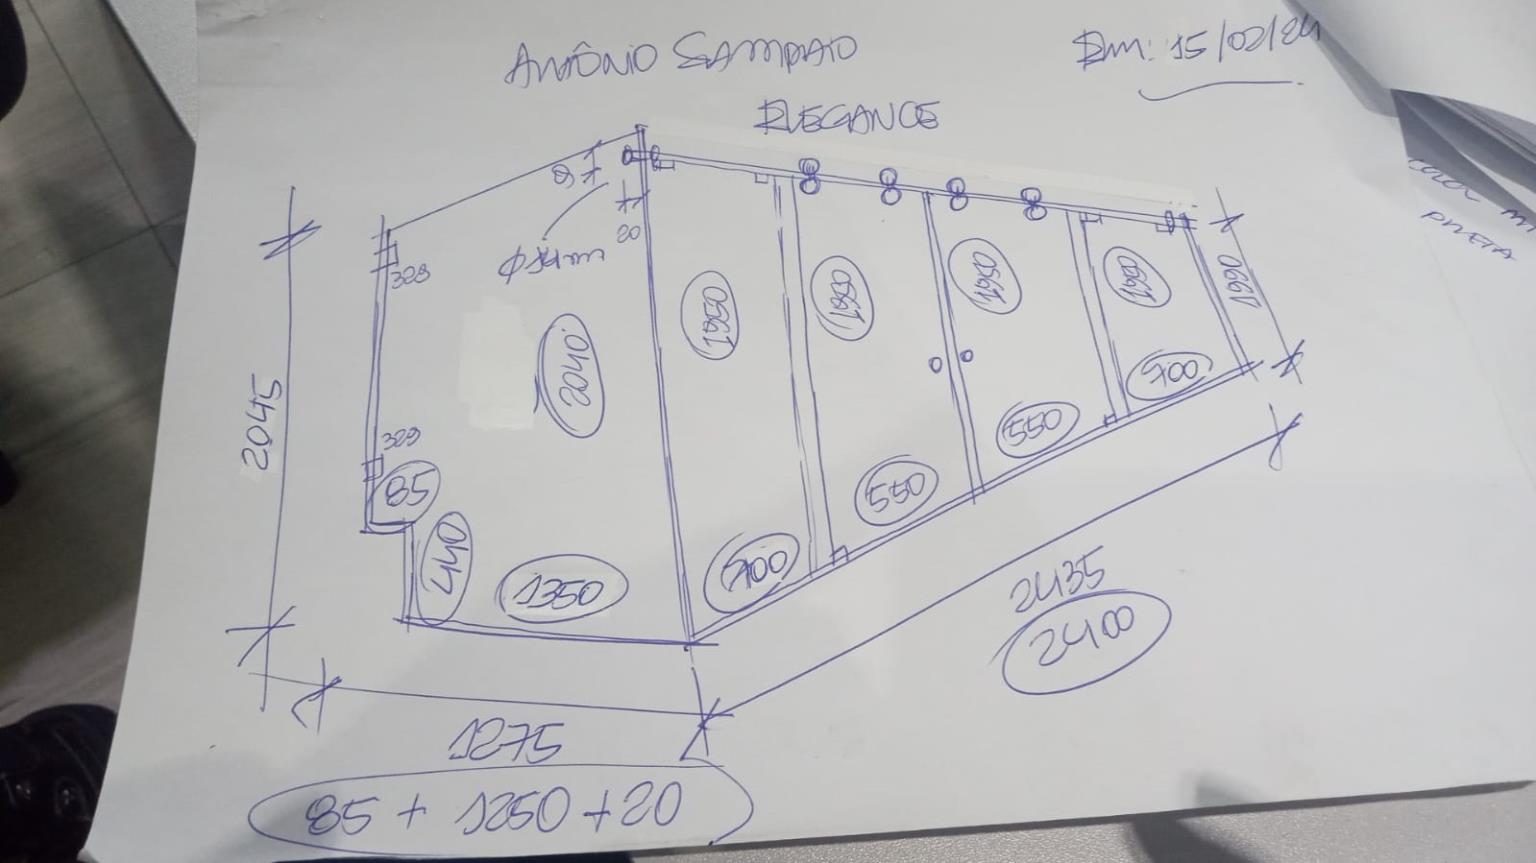 ANTÔNIO SAMPAIO
Em: 15/02/24
ELEGANCE
20
Ø14mm
328
2040
1950
1950
1950
1950
1990
2045
328
85
440
1350
700
550
550
700
2435
2400
1275
85 + 1250 + 20
PRETA